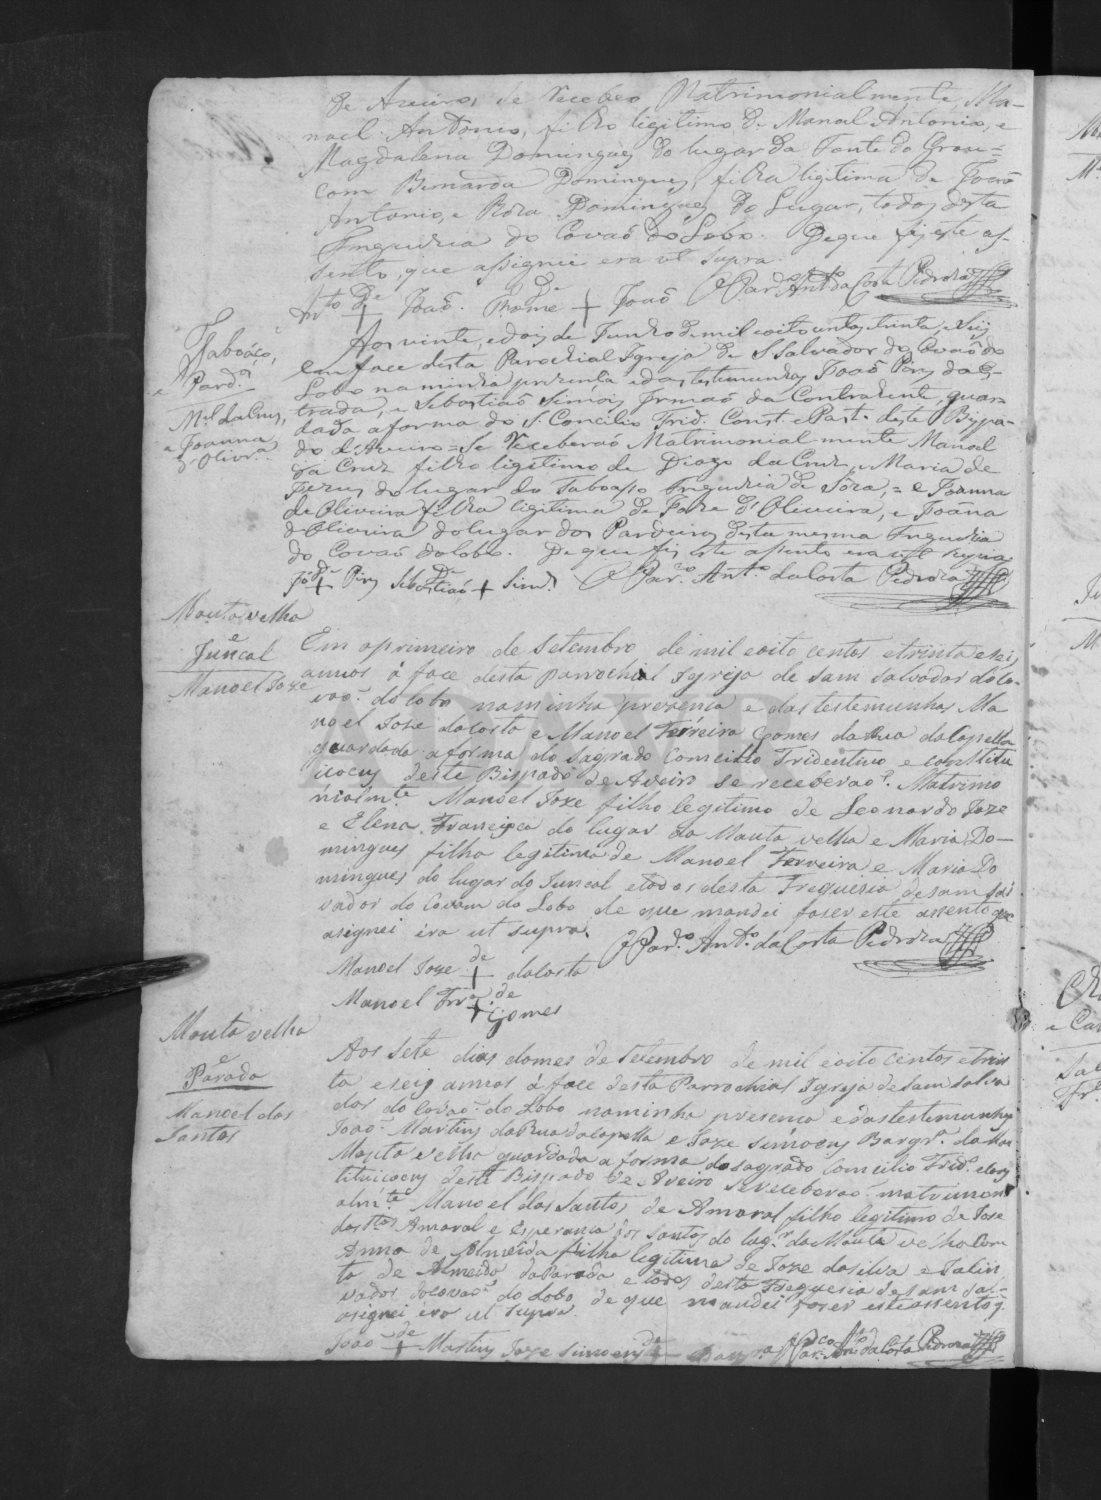 de Aveiro, se Recebeo Matrimonialmente, Ma-
noel Antonio, filho legitimo de Manoel Antonio, e
Magdalena Domingues do lugar da Fonte do Grou =
com Bernarda Domingues, filha legitima de Joaõ
Antonio, e Roza Domingues do Lugar, todos desta
Freguezia do Covaõ do Lobo. De que fiz este as-
sento, que assignei era ut supra.
De João. De João O Par.co Ant.o da Costa Pedroza
Taboaço,
e Pard.os
M.el da Crus,
e Joanna
d'Olivr.a
Aos vinte, e dois de Junho de mil e oito centos, trinta, e seis
em face desta Parochial Igreja de S Salvador do Covaõ do
Lobo na minha prezença e das testemunhas Joaõ Pires da Es-
trada, e Sebastiaõ Simões Irmaõ da Contrahente, guar-
dada a forma do S. Concilio Trid. Const. e Past. deste Bispa-
do d'Aveiro = Se Receberaõ Matrimonialmente Manoel
da Cruz filho legitimo de Diogo da Cruz, e Maria de
Jezus do lugar do Taboaço Freguezia de Sôza, = e Joanna
de Oliveira filha legitima de Joze d'Oliveira, e Joana
d'Oliveira do lugar dos Pardeiros desta mesma Freguezia
do Covaõ do Lobo. De que fiz este assento era ut supra
Joaõ De Pires Sebastiaõ De Simõis O Par.co Ant.o da Costa Pedroza
Mouta velha
e
Juncal
Manoel Joze
Em o primeiro de Setembro de mil e oito centos e trinta e seis
annos á face desta parrochial Igreja de Sam Salvador do Co-
vaõ do Lobo na minha prezença e das testemunhas Ma
noel Joze da Costa e Manoel Ferreira Gomes da Rua da Capella
guardada a forma do Sagrado Concilio Tridentino e constitu
icoens deste Bispado de Aveiro se receberaõ Matrimo
nialm.te Manoel Joze filho legitimo de Leonardo Joze
e Elena Francisca do lugar da Mouta velha e Maria Do-
mingues filha legitima de Manoel Ferreira e Maria Do
mingues do lugar do Juncal e todos desta Freguesia de Sam Sal
vador do Covam do Lobo de que mandei faser este assento que
asignei era ut supra.
O Par.co Ant.o da Costa Pedroza
Manoel Joze de da Costa
Manoel Frr.a de Gomes
Mouta velha
e
Parada
Manoel dos
Santos
Aos sete dias do mes de Setembro de mil e oito centos e trin
ta e seis annos á face desta Parrochial Igreja de Sam Salva
dor do Covaõ do Lobo na minha presença e das testemunhas
Joaõ Martins da Rua da Capella e Joze Simoens Bargr.o da Mou
Mouta velha guardada a forma do sagrado Concilio Trid.o e Cons
tituicoens deste Bispado de Aveiro se receberaõ matrimoni
alm.te Manoel dos Santos de Amaral filho legitimo de Joze
dos S.tos Amaral e Esperança dos Santos do lug.r da Mouta velha com
Anna de Almeida filha legitima de Joze da Silva e
de Almeida da Parada e todos desta Freguesia de Sam Sal-
vador do Covaõ do Lobo de que mandei fazer este assento q.
asignei era ut supra
Joaõ de Martins Joze Simoens de O Par.co Ant.o da Costa Pedroza